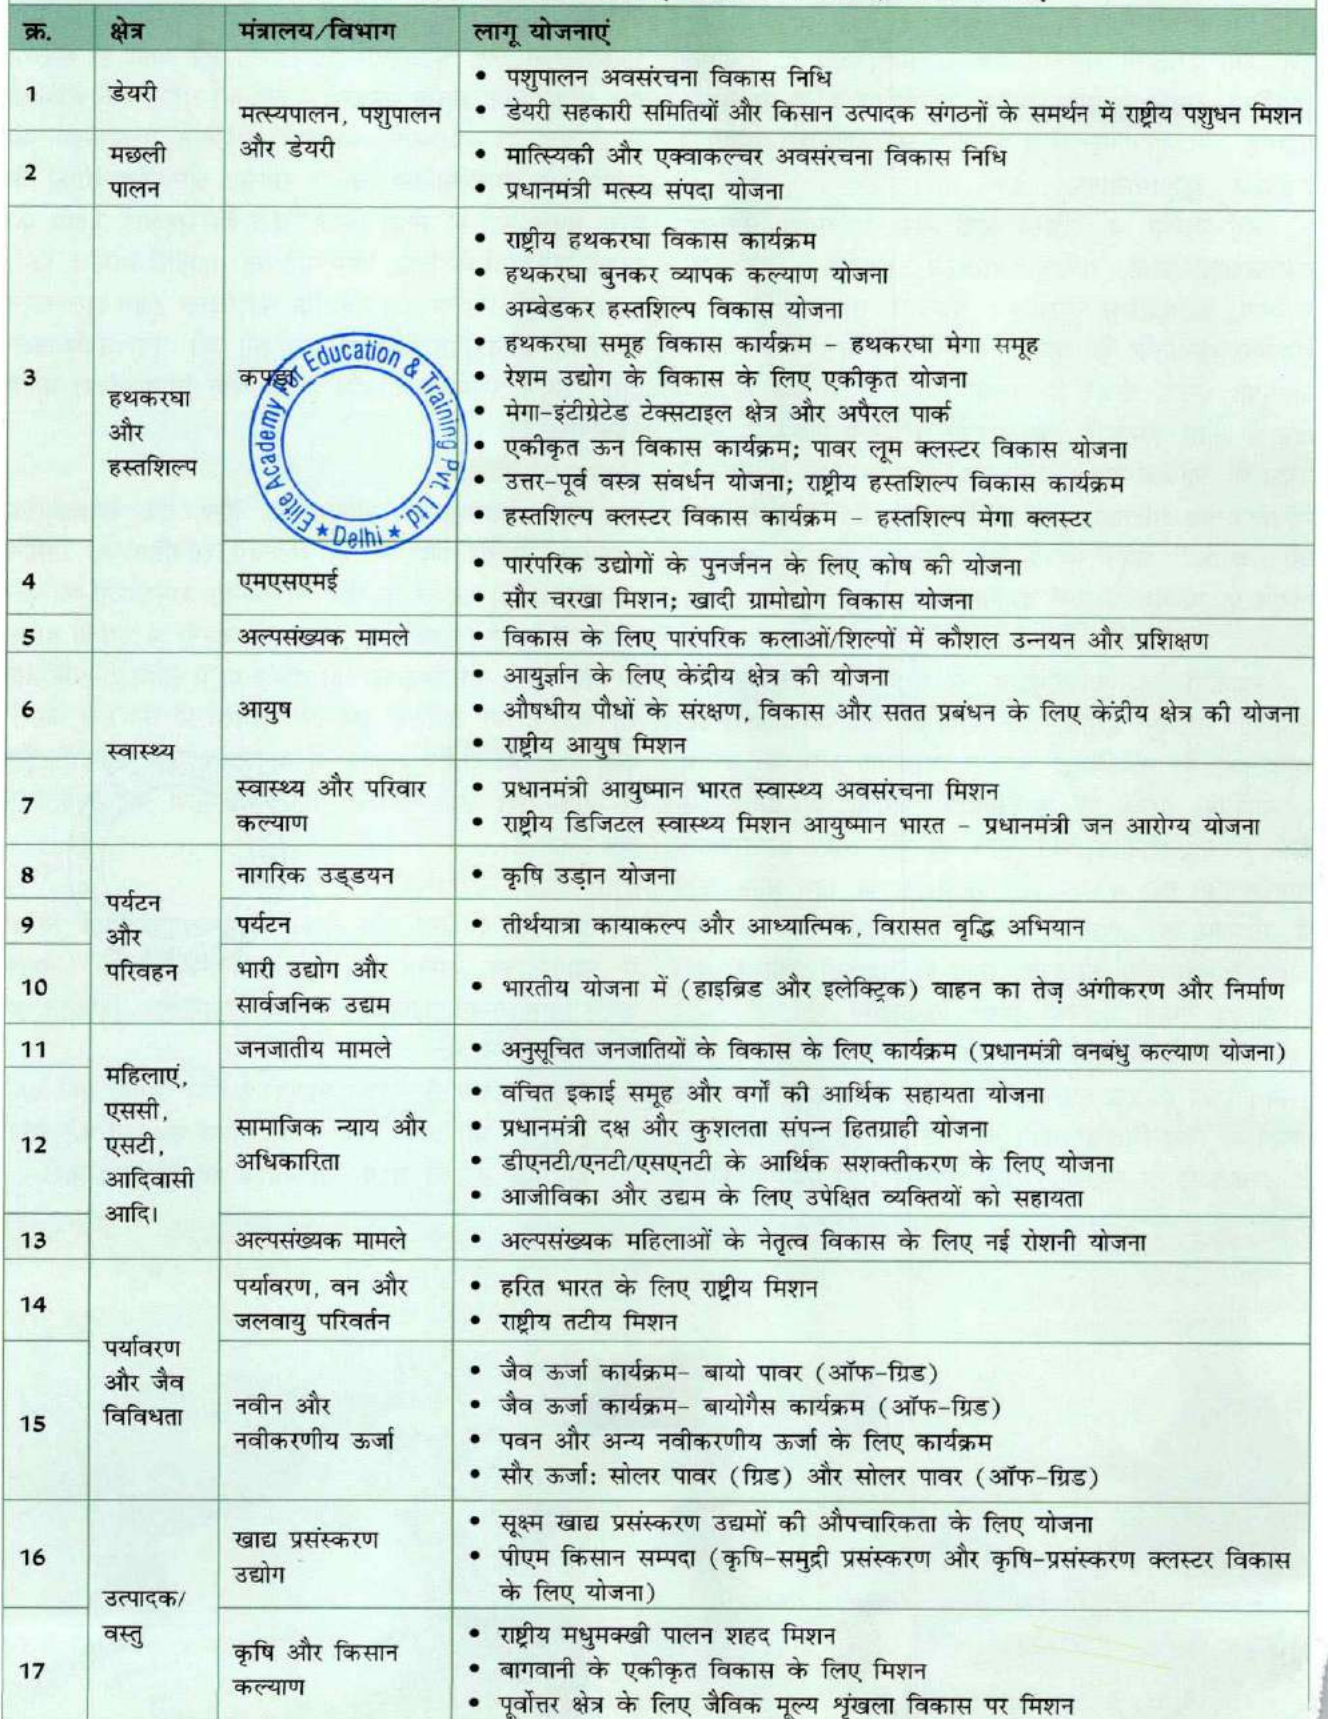 क्र. क्षेत्र मंत्रालय/विभाग लागू योजनाएं
1 डेयरी
मत्स्यपालन, पशुपालन
और डेयरी
• पशुपालन अवसंरचना विकास निधि
• डेयरी सहकारी समितियों और किसान उत्पादक संगठनों के समर्थन में राष्ट्रीय पशुधन मिशन
2 मछली
पालन
• मात्स्यिकी और एक्वाकल्चर अवसंरचना विकास निधि
• प्रधानमंत्री मत्स्य संपदा योजना
3
हथकरघा
और
हस्तशिल्प
कपड़ा
• राष्ट्रीय हथकरघा विकास कार्यक्रम
• हथकरघा बुनकर व्यापक कल्याण योजना
• अम्बेडकर हस्तशिल्प विकास योजना
• हथकरघा समूह विकास कार्यक्रम – हथकरघा मेगा समूह
• रेशम उद्योग के विकास के लिए एकीकृत योजना
• मेगा-इंटीग्रेटेड टेक्सटाइल क्षेत्र और अपैरल पार्क
• एकीकृत ऊन विकास कार्यक्रम; पावर लूम क्लस्टर विकास योजना
• उत्तर-पूर्व वस्त्र संवर्धन योजना; राष्ट्रीय हस्तशिल्प विकास कार्यक्रम
• हस्तशिल्प क्लस्टर विकास कार्यक्रम – हस्तशिल्प मेगा क्लस्टर
Elite Academy For Education & Training Pvt. Ltd.
★ Delhi ★
4 एमएसएमई
• पारंपरिक उद्योगों के पुनर्जनन के लिए कोष की योजना
• सौर चरखा मिशन; खादी ग्रामोद्योग विकास योजना
5 अल्पसंख्यक मामले
• विकास के लिए पारंपरिक कलाओं/शिल्पों में कौशल उन्नयन और प्रशिक्षण
6
स्वास्थ्य
आयुष
• आयुर्ज्ञान के लिए केंद्रीय क्षेत्र की योजना
• औषधीय पौधों के संरक्षण, विकास और सतत प्रबंधन के लिए केंद्रीय क्षेत्र की योजना
• राष्ट्रीय आयुष मिशन
7 स्वास्थ्य और परिवार
कल्याण
• प्रधानमंत्री आयुष्मान भारत स्वास्थ्य अवसंरचना मिशन
• राष्ट्रीय डिजिटल स्वास्थ्य मिशन आयुष्मान भारत – प्रधानमंत्री जन आरोग्य योजना
8
पर्यटन
और
परिवहन
नागरिक उड्डयन
• कृषि उड़ान योजना
9 पर्यटन
• तीर्थयात्रा कायाकल्प और आध्यात्मिक, विरासत वृद्धि अभियान
10 भारी उद्योग और
सार्वजनिक उद्यम
• भारतीय योजना में (हाइब्रिड और इलेक्ट्रिक) वाहन का तेज़ अंगीकरण और निर्माण
11
महिलाएं,
एससी,
एसटी,
आदिवासी
आदि।
जनजातीय मामले
• अनुसूचित जनजातियों के विकास के लिए कार्यक्रम (प्रधानमंत्री वनबंधु कल्याण योजना)
12 सामाजिक न्याय और
अधिकारिता
• वंचित इकाई समूह और वर्गों की आर्थिक सहायता योजना
• प्रधानमंत्री दक्ष और कुशलता संपन्न हितग्राही योजना
• डीएनटी/एनटी/एसएनटी के आर्थिक सशक्तीकरण के लिए योजना
• आजीविका और उद्यम के लिए उपेक्षित व्यक्तियों को सहायता
13 अल्पसंख्यक मामले
• अल्पसंख्यक महिलाओं के नेतृत्व विकास के लिए नई रोशनी योजना
14
पर्यावरण
और जैव
विविधता
पर्यावरण, वन और
जलवायु परिवर्तन
• हरित भारत के लिए राष्ट्रीय मिशन
• राष्ट्रीय तटीय मिशन
15 नवीन और
नवीकरणीय ऊर्जा
• जैव ऊर्जा कार्यक्रम– बायो पावर (ऑफ-ग्रिड)
• जैव ऊर्जा कार्यक्रम– बायोगैस कार्यक्रम (ऑफ-ग्रिड)
• पवन और अन्य नवीकरणीय ऊर्जा के लिए कार्यक्रम
• सौर ऊर्जा: सोलर पावर (ग्रिड) और सोलर पावर (ऑफ-ग्रिड)
16
उत्पादक/
वस्तु
खाद्य प्रसंस्करण
उद्योग
• सूक्ष्म खाद्य प्रसंस्करण उद्यमों की औपचारिकता के लिए योजना
• पीएम किसान सम्पदा (कृषि-समुद्री प्रसंस्करण और कृषि-प्रसंस्करण क्लस्टर विकास
के लिए योजना)
17 कृषि और किसान
कल्याण
• राष्ट्रीय मधुमक्खी पालन शहद मिशन
• बागवानी के एकीकृत विकास के लिए मिशन
• पूर्वोत्तर क्षेत्र के लिए जैविक मूल्य शृंखला विकास पर मिशन